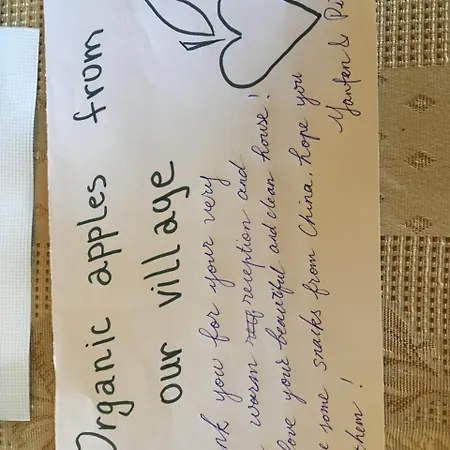 Organic apples from
our village
you for your very
warm reception and
love your beautiful and clean house!
some snacks from China, hope you
them!
Yanfen &